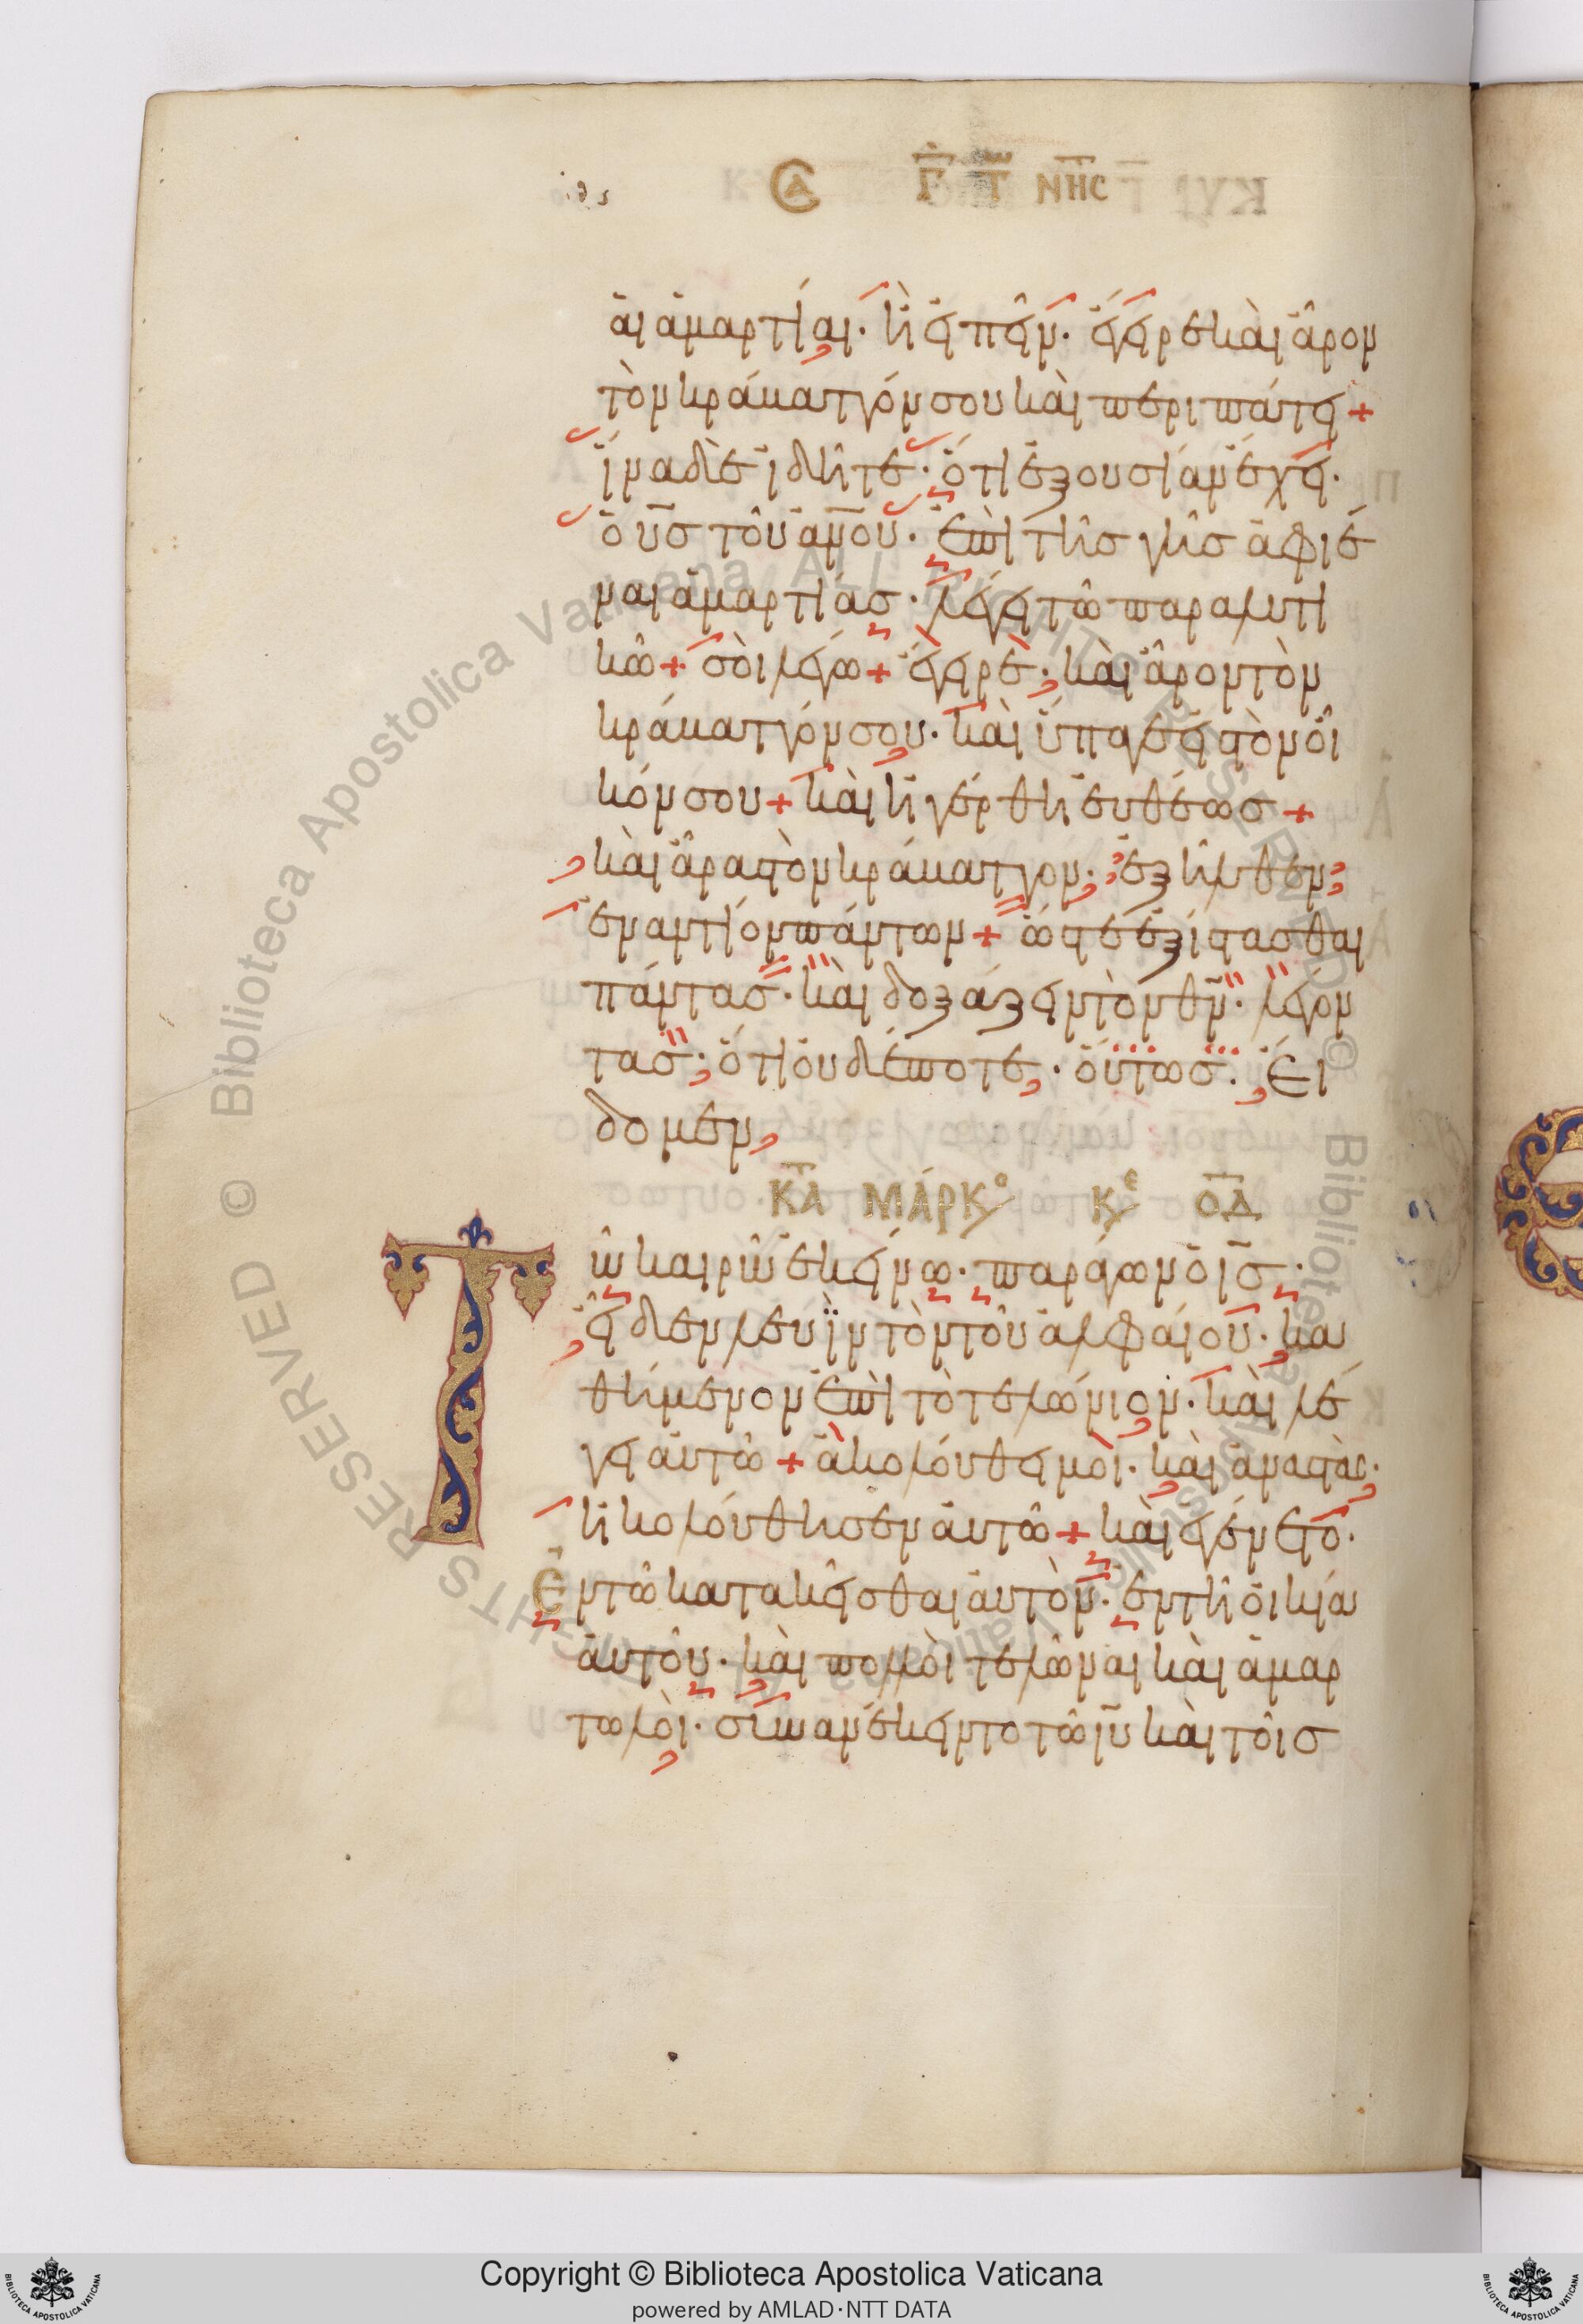 ϹΑ Γ ΤΩ ΝΗϹ
ἁι ἁμαρτίαι· ἢ εἰπεῖν· ἔγειρε καὶ ἆρον
τὸν κράβαττόν σου καὶ περιπάτει +
ἵνα δὲ ἰδῆτε· ὅτι ἐξουσίαν ἔχει·
ὁ υ̅ς̅ τοῦ ἀν̅ο̅υ̅· ἐπὶ τῆς γῆς ἀφιέ
ναι ἁμαρτίας· λέγει τῶ παραλυτι
κῶ + σοὶ λέγω + ἔγειρε· καὶ ἆρον τὸν
κράβαττόν σου· καὶ ὕπαγε εἰς τὸν οἶ
κόν σου + καὶ ἠγέρθη εὐθέως +
καὶ ἄρας τὸν κράβαττον· ἐξῆλθεν
ἐναντίον πάντων + ὥστε ἐξίστασθαι
πάντας· καὶ δοξάζειν τὸν θ̅ν̅· λέγον
τας· ὅτι οὐδέποτε· οὕτως· εἴ
δομεν,
ΚΑΤ ΜΆΡΚΟ ΚΕ ΟΔ
Τῶ καιρῶ ἐκείνω· παράγων ὁ ι̅ς̅·
εἶδεν λευϊν τὸν τοῦ ἀλφαίου· κα
θήμενον ἐπὶ τὸ τελώνιον· καὶ λέ
γει αὐτῶ + ἀκολούθει μοὶ· καὶ ἀναστὰς·
ἠκολούθησεν αὐτῶ + καὶ ἐγένετο·
Ἐν τῶ κατακεῖσθαι αὐτὸν· ἐν τῆ οἰκία
αὐτοῦ· καὶ πολλοὶ τελῶναι καὶ ἁμαρ
τωλοὶ· συναν́εκειντο τῶ ι̅υ̅ καὶ τοῖς
Copyright © Biblioteca Apostolica Vaticana
powered by AMLAD·NTT DATA
© Biblioteca Apostolica Vaticana ALL RIGHTS RESERVED